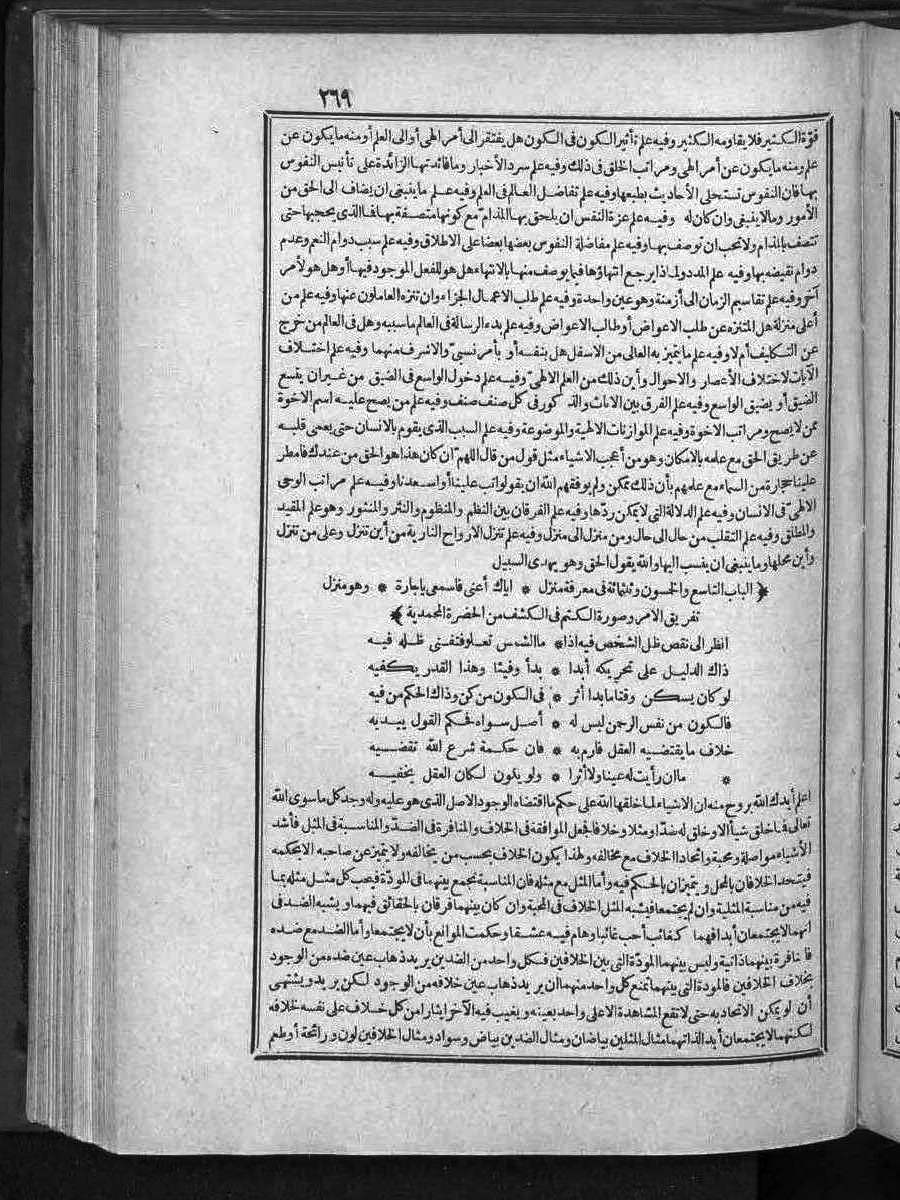 ٢٦٩
قوة الكثير فلا يقاومه الكثير وفيه علم تأثير الكون فى الكون هل يفتقر الى أمر الهى أو الى العلم أو منه ما يكون عن
علم ومنه ما يكون عن أمر الهى ومراتب الخلق فى ذلك وفيه علم سرد الأخبار وما فائدتها الزائدة على تأنيس النفوس
بها فان النفوس تستحلى الأحاديث بطبعها وفيه علم تفاضل العالم فى العلم وفيه علم ما ينبغى ان يضاف الى الحق من
الأمور وما لا ينبغى وان كان له وفيه علم عزة النفس ان يلحق بها المذام مع كونها متصفة بها فما الذى يحجبها حتى
تتصف بالمذام ولا تحب ان توصف بها وفيه علم مفاضلة النفوس بعضها بعضا على الاطلاق وفيه علم سبب دوام النعم وعدم
دوام نقيضه بها وفيه علم المدد ولماذا يرجع انتهاؤها فيما يوصف منها بالانتهاء هل هو للفعل الموجود فيها أو هل هو لأمر
آخر وفيه علم تقاسيم الزمان الى أزمنة وهو عين واحدة وفيه علم طلب الاعمال الجزاء وان تنزه العاملون عنها وفيه علم من
أعلى منزلة هل المتنزه عن طلب الاعواض أو طالب الاعواض وفيه علم بدء الرسالة فى العالم ما سببه وهل فى العالم من خرج
عن التكليف أم لا وفيه علم ما يتميز به العالى من الاسفل هل بنفسه أو بأمر نسبى والاشرف منهما وفيه علم اختلاف
الآيات لاختلاف الأعصار والاحوال وأين ذلك من العلم الالهى وفيه علم دخول الواسع فى الضيق من غير ان يتسع
الضيق أو يضيق الواسع وفيه علم الفرق بين الاناث والذكور فى كل صنف صنف وفيه علم من يصح عليه اسم الاخوة
ممن لا يصح ومراتب الاخوة وفيه علم الموازنات الالهية والموضوعة وفيه علم السبب الذى يقوم بالانسان حتى يعمى قلبه
عن طريق الحق مع علمه بالامكان وهو من أعجب الاشياء مثل قول من قال اللهم ان كان هذا هو الحق من عندك فامطر
علينا حجارة من السماء مع علمهم بأن ذلك ممكن ولم يوفقهم الله ان يقولوا تب علينا أو اسعدنا وفيه علم مراتب الوحى
الالهى فى الانسان وفيه علم الدلالة التى لا يمكن ردها وفيه علم الفرقان بين النظم والمنظوم والنثر والمنثور وهو علم المقيد
والمطلق وفيه علم التقلب من حال الى حال ومن منزل الى منزل وفيه علم تنزل الارواح النارية من أين تنزل وعلى من تنزل
وأين محلها وما ينبغى ان ينسب اليها والله يقول الحق وهو يهدى السبيل
﴿ الباب التاسع والخمسون وثلثمائة فى معرفة منزل * اياك أعنى فاسمعى ياجارة * وهو منزل
تفريق الامر وصورة الكتم فى الكشف من الحضرة المحمدية ﴾
انظر الى نقص ظل الشخص فيه اذا * ما الشمس تعلو فتفنى ظله فيه
ذاك الدليل على تحريكه أبدا * بدأ وفيئا وهذا القدر يكفيه
لو كان يسكن وقتا ما بدا أثر * فى الكون من كن وذاك الحكم من فيه
فالكون من نفس الرحمن ليس له * أصل سواه فحكم القول يبديه
خلاف ما يقتضيه العقل فارم به * فان حكمة شرع الله تقضيه
ما ان رأيت له عينا ولا أثرا * ولو يكون لكان العقل يخفيه *
اعلم أيدك الله بروح منه ان الاشياء لما خلقها الله على حكم ما اقتضاه الوجود الاصل الذى هو عليه وله وجد كل ما سوى الله
تعالى فما خلق شيأ الا وخلق له ضدا ومثلا وخلافا فجعل الموافقة فى الخلاف والمنافرة فى الضد والمناسبة فى المثل فأشد
الأشياء مواصلة ومحبة واتحادا الخلاف مع مخالفه ولهذا يكون الخلاف بحسب من يخالفه ولا يتميز عن صاحبه الا بحكمه
فيتحد الخلافان بالمحل ويتميزان بالحكم فيه وأما المثل مع مثله فان المناسبة تجمع بينهما فى المودة فيحب كل مثل مثله بما
فيه من مناسبة المثلية وان لم يجتمعا فيشبه المثل الخلاف فى المحبة وان كان بينهما فرقان بالحقائق فيهما ويشبه الضد فى
انهما لا يجتمعان أبدا فهما كغائب أحب غائبا وهام فيه عشقا وحكمت الموانع بأن لا يجتمعا وأما الضد مع ضده
فالمنافرة بينهما ذاتية وليس بينهما المودة التى بين الخلافين فكل واحد من الضدين يريد ذهاب عين ضده من الوجود
بخلاف الخلافين فالمودة التى بينهما تمنع كل واحد منهما ان يريد ذهاب عين خلافه من الوجود لكن يريد ويشتهى
أن لو يمكن الاتحاد به حتى لا تقع المشاهدة الا على واحد بعينه ويغيب فيه الآخر ايثارا من كل خلاف على نفسه خلافه
لكنهما لا يجتمعان أبدا لذاتهما مثال المثلين بياضان ومثال الضدين بياض وسواد ومثال الخلافين لون ورائحة أو طعم